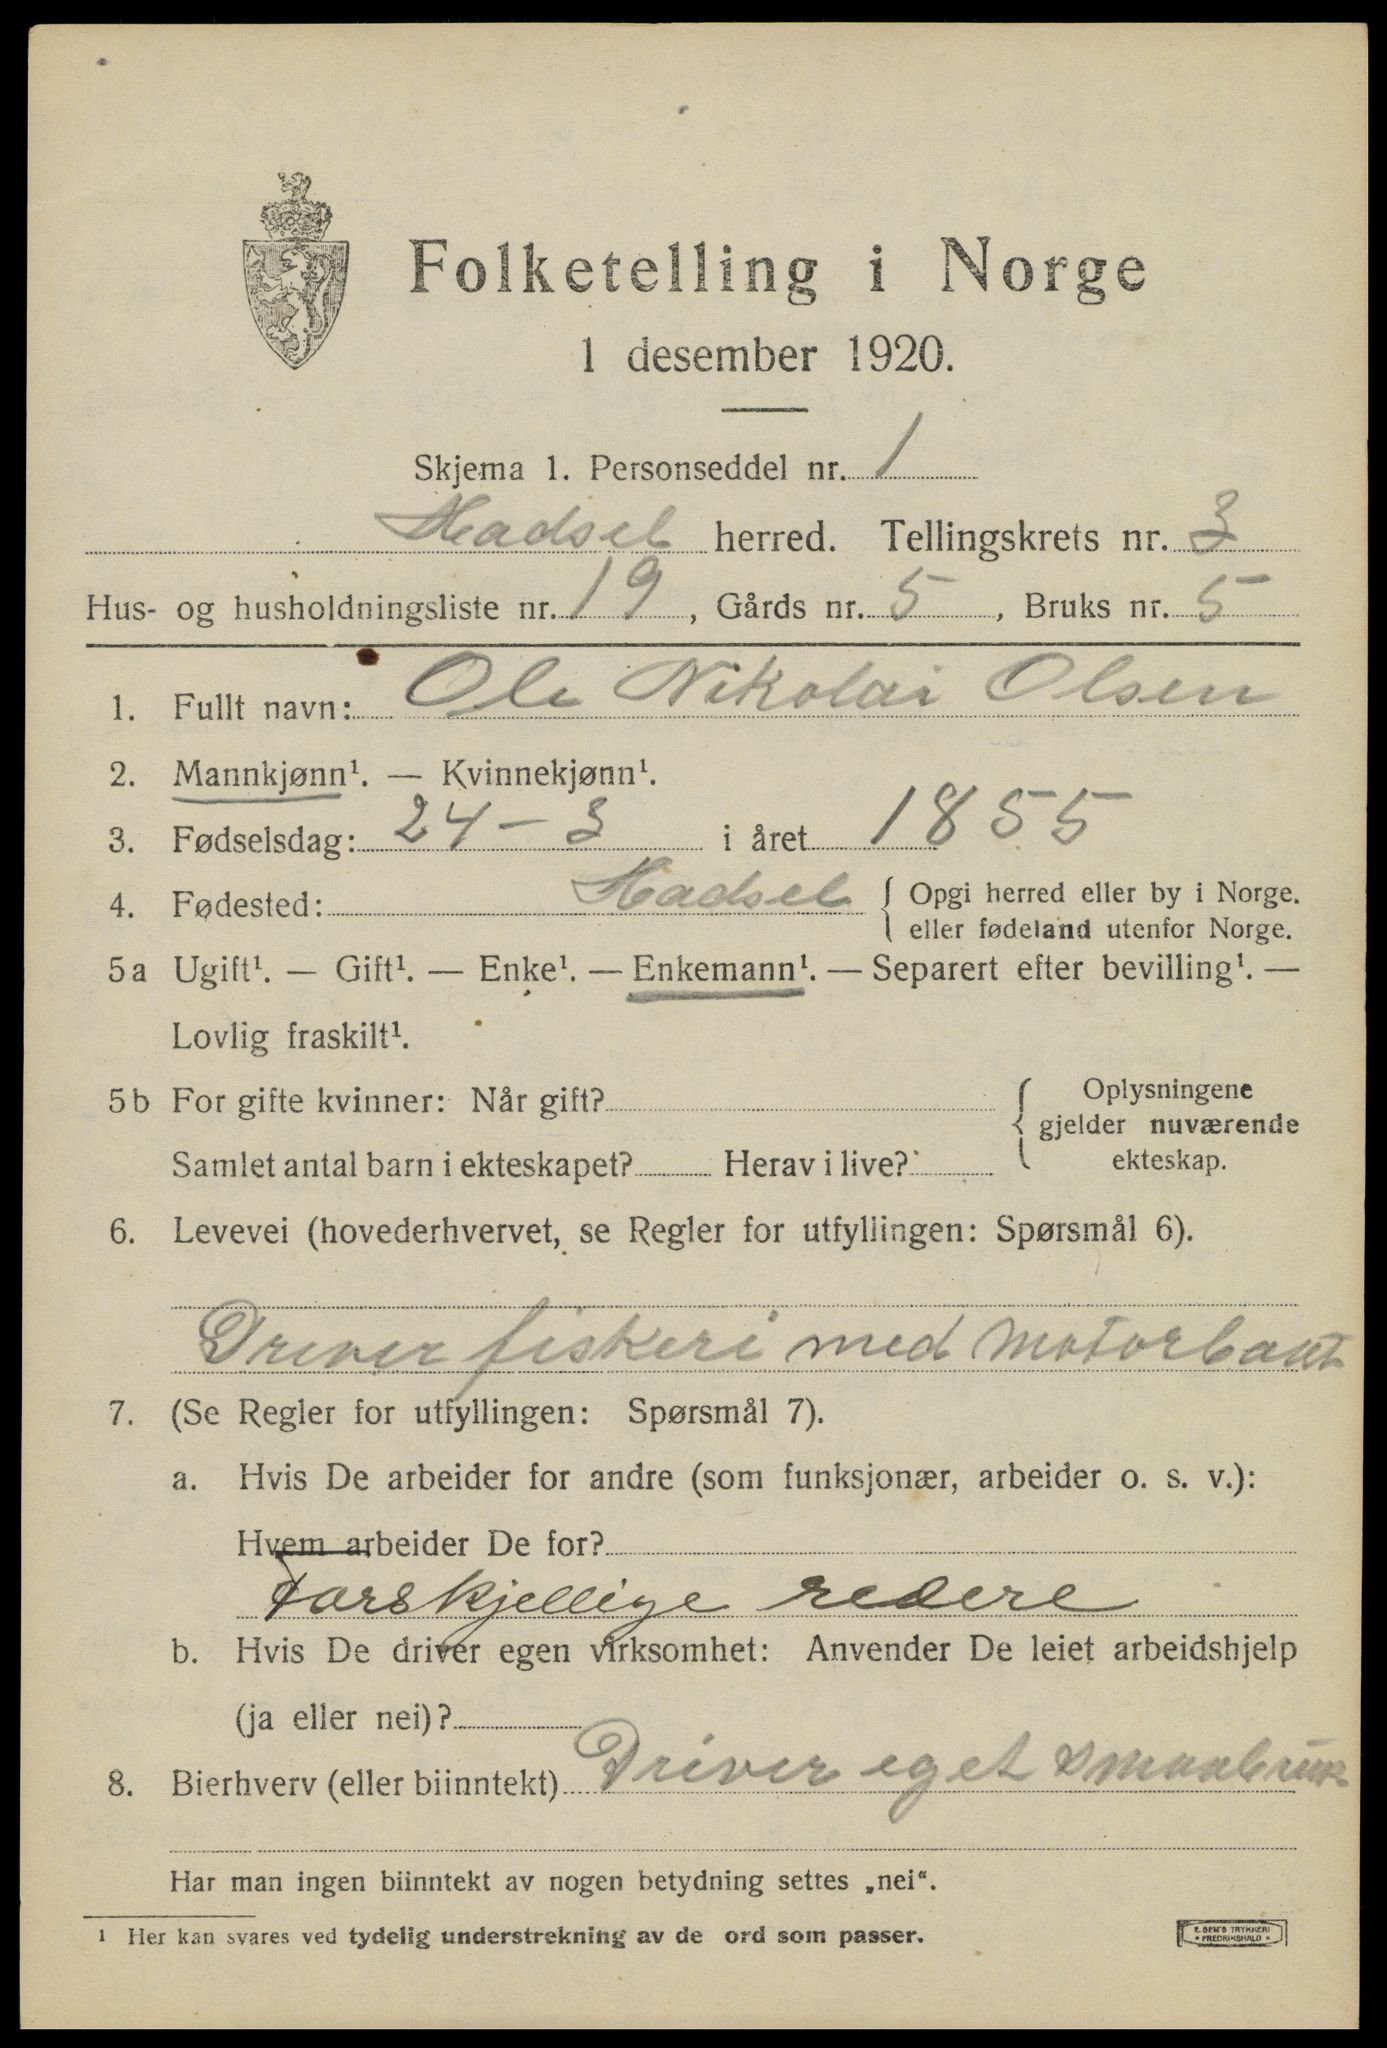 Folketelling i Norge
1 desember 1920.
Skjema 1. Personseddel nr. 1
Hadsel herred. Tellingskrets nr. 3
Hus- og husholdningsliste nr. 19, Gårds nr. 5, Bruks nr. 5
1. Fullt navn: Ole Nikolai Olsen
2. Mannkjønn¹. — Kvinnekjønn¹.
3. Fødselsdag: 24-3 i året 1855
4. Fødested: Hadsel { Opgi herred eller by i Norge.
eller fødeland utenfor Norge.
5a Ugift¹. — Gift¹. — Enke¹. — Enkemann¹. — Separert efter bevilling¹. —
Lovlig fraskilt¹.
5b For gifte kvinner: Når gift?
Samlet antal barn i ekteskapet? Herav i live?
Oplysningene
gjelder nuværende
ekteskap.
6. Levevei (hovederhvervet, se Regler for utfyllingen: Spørsmål 6).
Driver fiskeri med Motorbaat
7. (Se Regler for utfyllingen: Spørsmål 7).
a. Hvis De arbeider for andre (som funksjonær, arbeider o. s. v.):
Hvem arbeider De for?
Forskjellige redere
b. Hvis De driver egen virksomhet: Anvender De leiet arbeidshjelp
(ja eller nei)?
8. Bierhverv (eller biinntekt) Driver eget Smaabruk
Har man ingen biinntekt av nogen betydning settes „nei“.
¹ Her kan svares ved tydelig understrekning av de ord som passer.
E. SEM'S TRYKKERI
• FREDRIKSHALD •